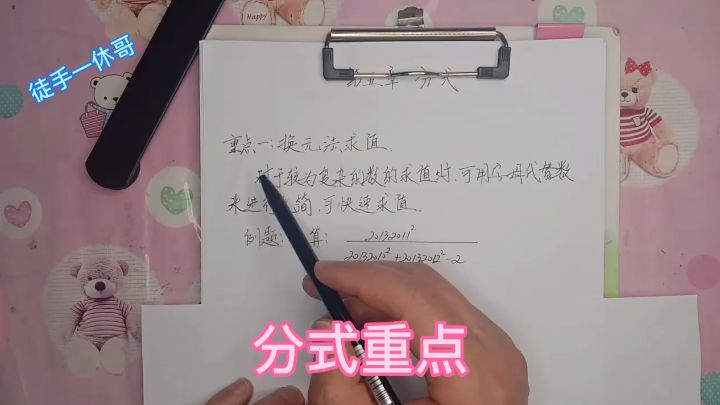 徒手一休哥
Happy
分式
重点一:换元法求值.
对于较为复杂的数的求值时,可用字母代替数
来进行 简,可快速求值.
例题: 算: 20132011²
20132010²+20132012²-2
分式重点